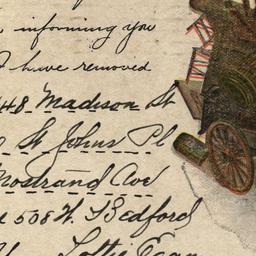 informing you
I have removed
448 Madison St
St Johns Pl
Nostrand Ave
508 W. Bedford
Lottie Egan